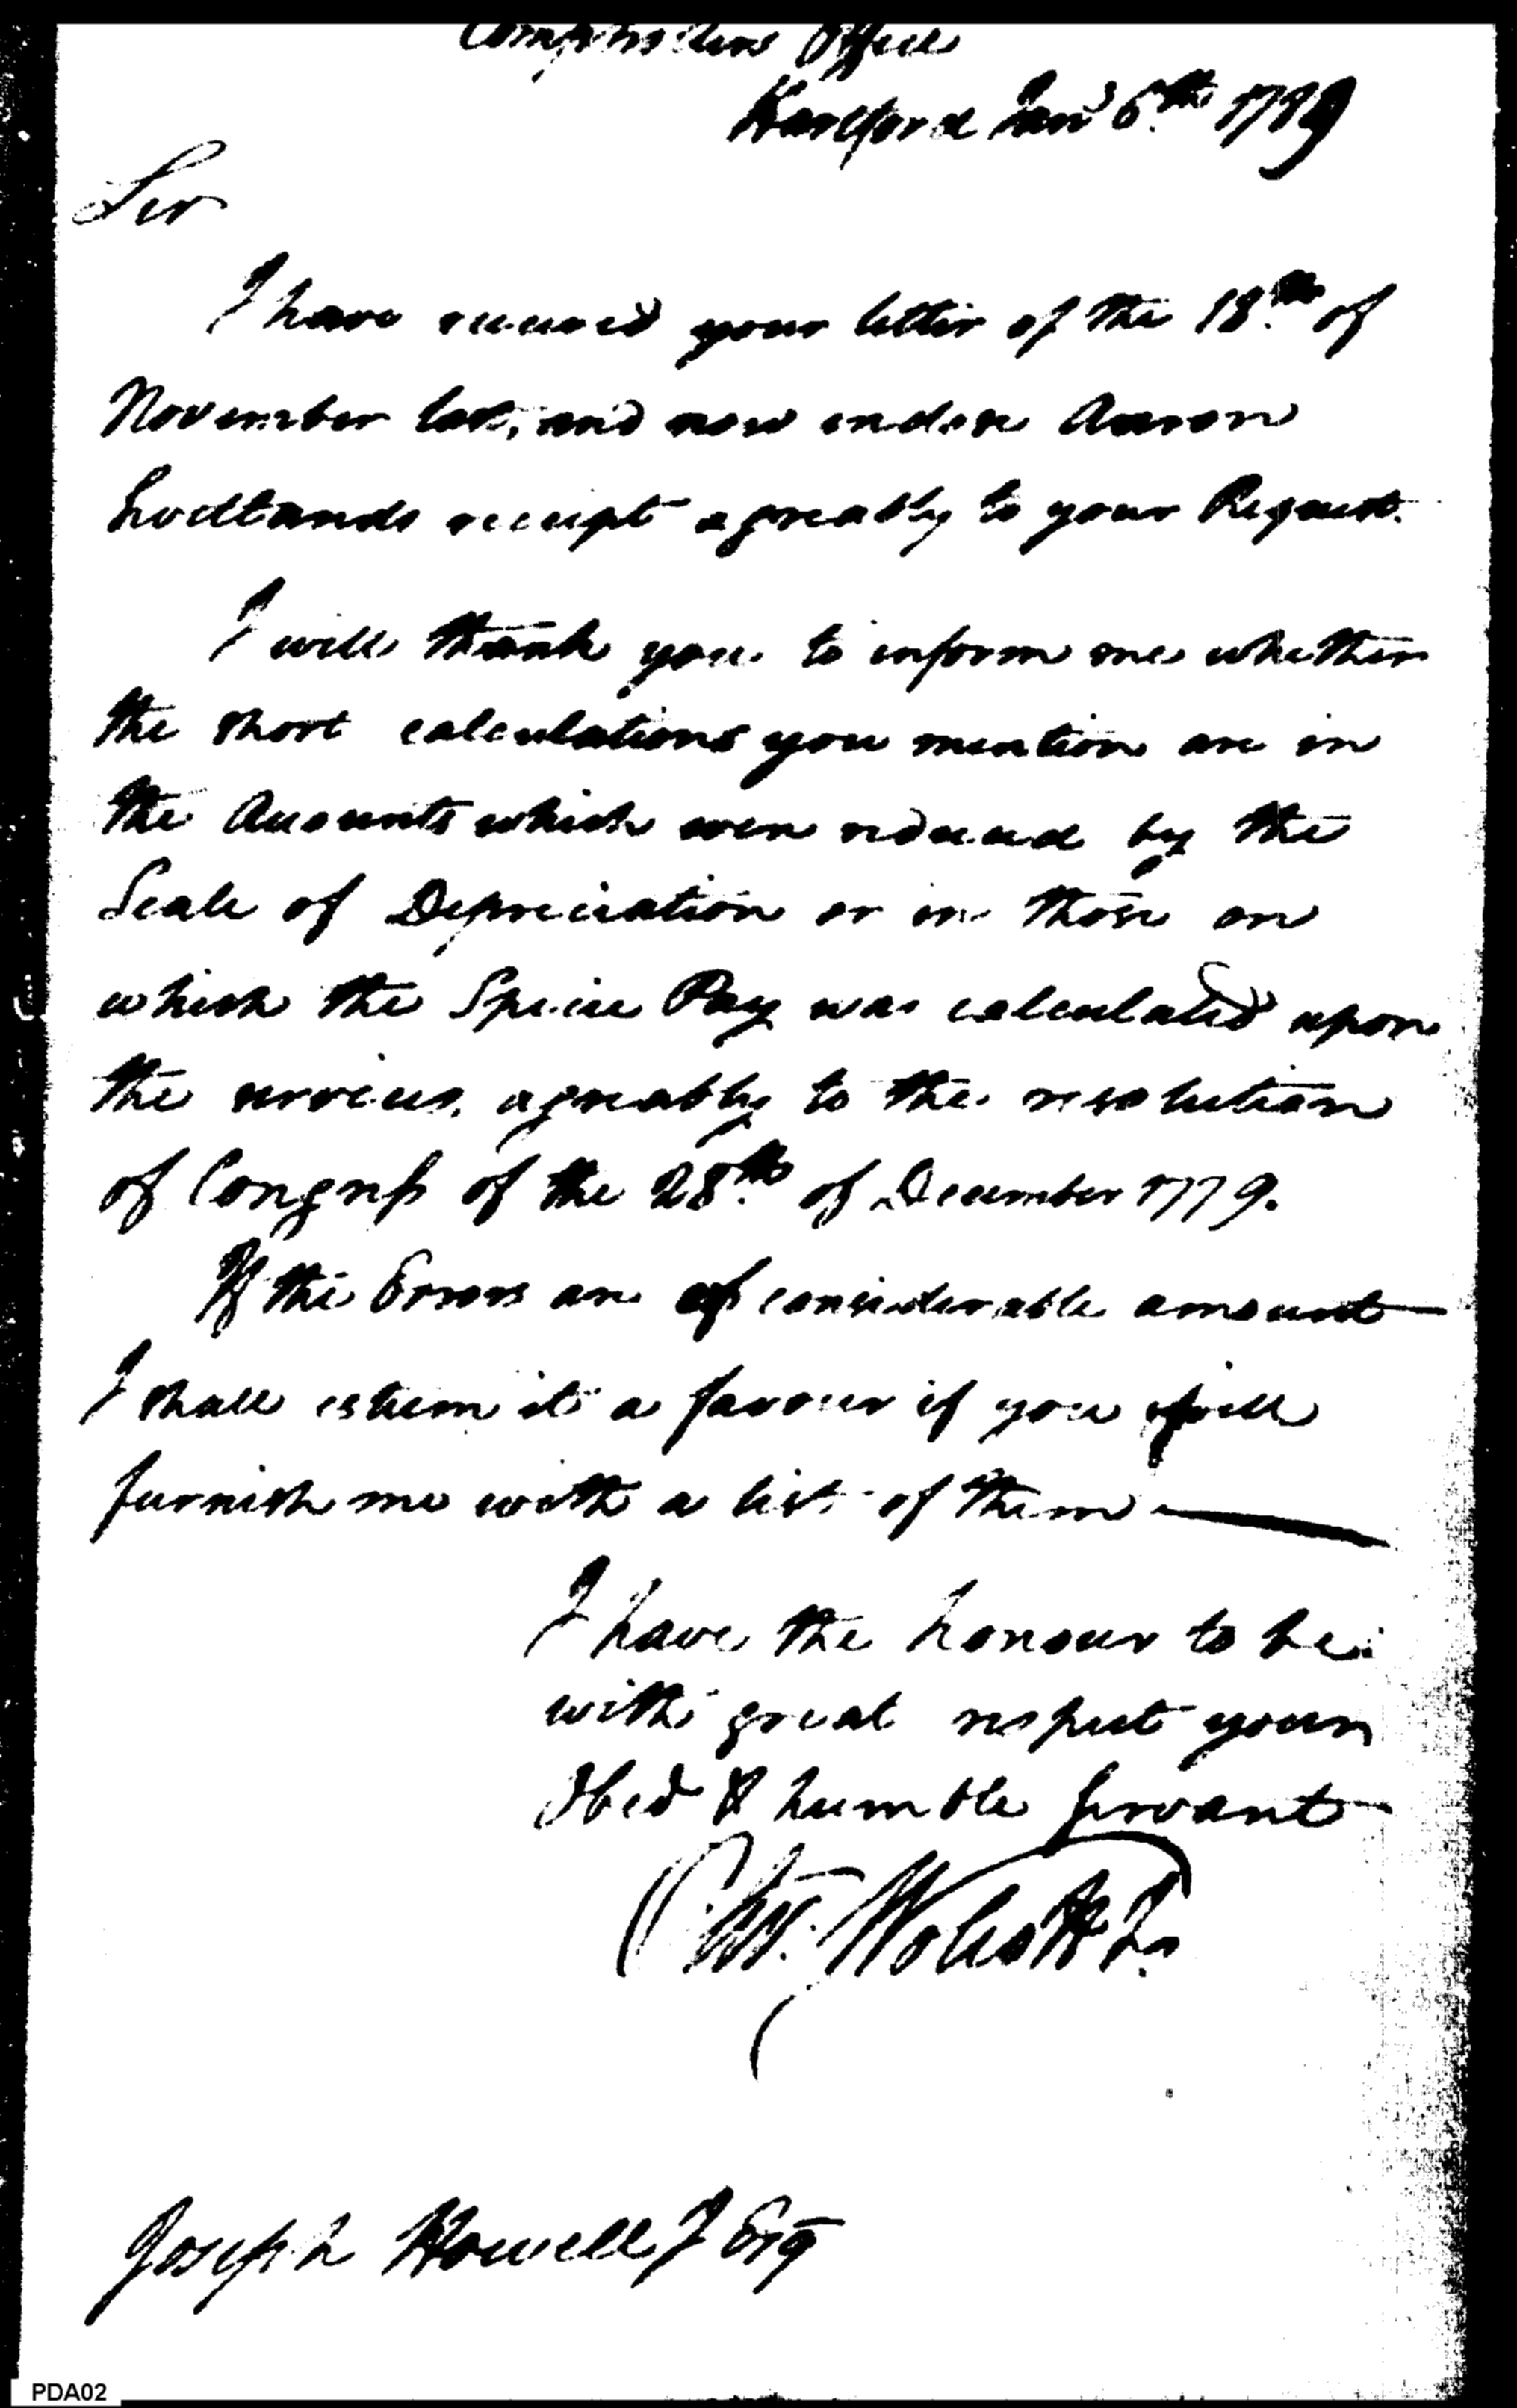 Comptrollers Office
Hartford Jany 6th 1789
Sir
I have received your letter of the 18th of
November last, and now inclose Aaron
receipt agreably to your Request.
I will thank you to inform me whether
the short calculations you mention are in
the Accounts which were reduced by the
Scale of Depreciation or in those on
which the Specie Pay was calculated upon
the services, agreably to the resolution
of Congress of the 28th of December 1779.
If the Errors are of considerable amount
I shall esteem it a favour if you will
furnish me with a list of them
I have the honour to be
with great respect your
Obed & humble servant
Oliv. Wolcott Jr.
Joseph Howell J Esq
PDA02